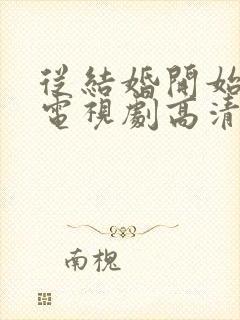 從結婚開始
電視劇高清
南槐